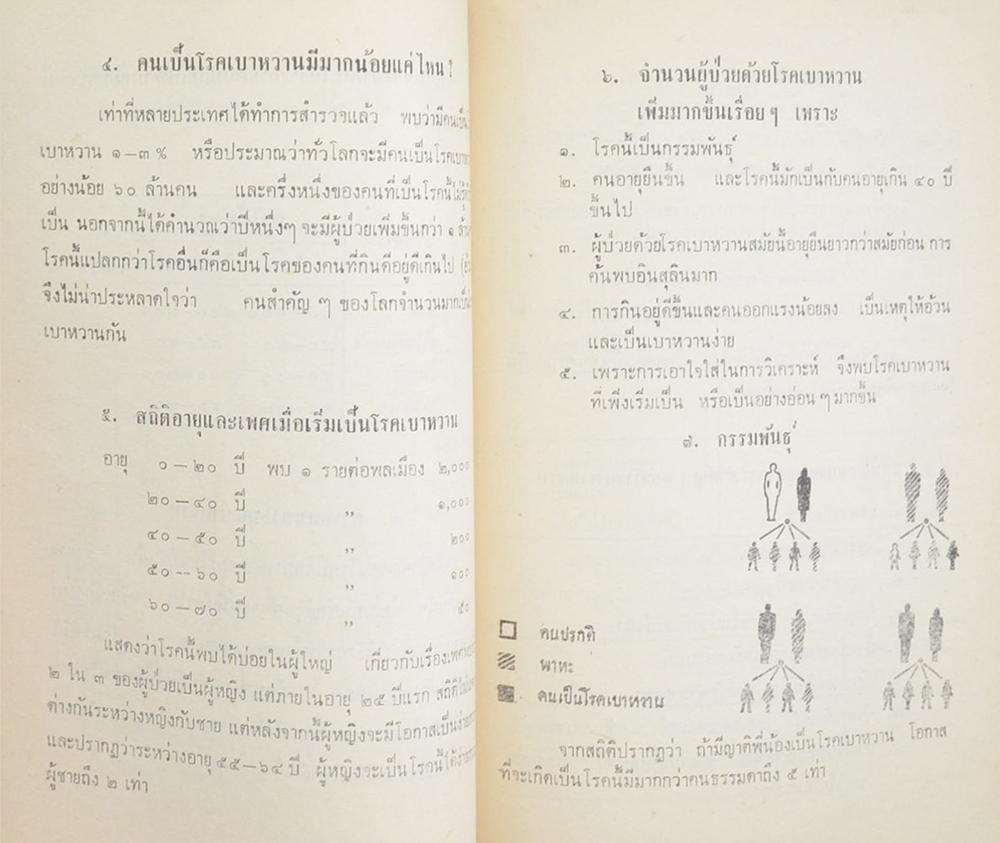 ๔. คนเป็นโรคเบาหวานมีมากน้อยแค่ไหน?
เท่าที่หลายประเทศได้ทำการสำรวจแล้ว พบว่ามีคนเป็น
เบาหวาน ๑–๓ % หรือประมาณว่าทั่วโลกจะมีคนเป็นโรคเบาหวาน
อย่างน้อย ๖๐ ล้านคน และครึ่งหนึ่งของคนที่เป็นโรคนี้ไม่รู้
เป็น นอกจากนี้ได้คำนวณว่าปีหนึ่งๆ จะมีผู้ป่วยเพิ่มขึ้นกว่า ๑ ล้าน
โรคนี้แปลกกว่าโรคอื่นก็คือเป็นโรคของคนที่กินดีอยู่ดีเกินไป
จึงไม่น่าประหลาดใจว่า คนสำคัญ ๆ ของโลกจำนวนมากเป็น
เบาหวานกัน
๕. สถิติอายุและเพศเมื่อเริ่มเป็นโรคเบาหวาน
อายุ ๐ – ๒๐ ปี พบ ๑ รายต่อพลเมือง ๒,๐๐๐
๒๐ – ๔๐ ปี ,, ๑,๐๐๐
๔๐ – ๕๐ ปี ,, ๒๐๐
๕๐ -- ๖๐ ปี ,, ๑๐๐
๖๐ – ๗๐ ปี ,, ๕๐
แสดงว่าโรคนี้พบได้บ่อยในผู้ใหญ่ เกี่ยวกับเรื่องเพศ
๒ ใน ๓ ของผู้ป่วยเป็นผู้หญิง แต่ภายในอายุ ๒๕ ปีแรก สถิติ
ต่างกันระหว่างหญิงกับชาย แต่หลังจากนี้ผู้หญิงจะมีโอกาสเป็นง่าย
และปรากฏว่าระหว่างอายุ ๕๕–๖๔ ปี ผู้หญิงจะเป็นโรคนี้ได้ง่าย
ผู้ชายถึง ๒ เท่า
๖. จำนวนผู้ป่วยด้วยโรคเบาหวาน
เพิ่มมากขึ้นเรื่อย ๆ เพราะ
๑. โรคนี้เป็นกรรมพันธุ์
๒. คนอายุยืนขึ้น และโรคนี้มักเป็นกับคนอายุเกิน ๔๐ ปี
ขึ้นไป
๓. ผู้ป่วยด้วยโรคเบาหวานสมัยนี้อายุยืนยาวกว่าสมัยก่อน การ
ค้นพบอินสุลินมาก
๔. การกินอยู่ดีขึ้นและคนออกแรงน้อยลง เป็นเหตุให้อ้วน
และเป็นเบาหวานง่าย
๕. เพราะการเอาใจใส่ในการวิเคราะห์ จึงพบโรคเบาหวาน
ที่เพิ่งเริ่มเป็น หรือเป็นอย่างอ่อน ๆ มากขึ้น
๗. กรรมพันธุ์
คนปรกติ
พาหะ
คนเป็นโรคเบาหวาน
จากสถิติปรากฏว่า ถ้ามีญาติพี่น้องเป็นโรคเบาหวาน โอกาส
ที่จะเกิดเป็นโรคนี้มีมากกว่าคนธรรมดาถึง ๕ เท่า